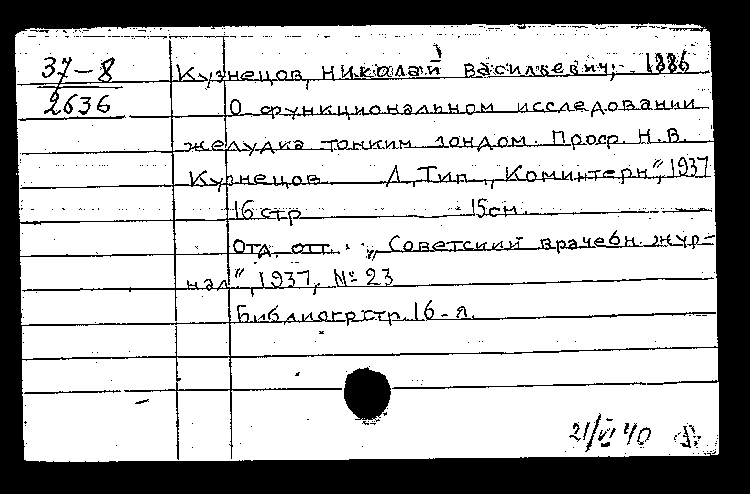 37-8
2636
Кузнецов, Николай Васильевич, 1886
О функциональном исследовании
желудка тонким зондом. Проф. Н.В.
Кузнецов Л, Тип „Коминтерн“, 1937
16 стр 15 см.
Отд. отт. „Советский врачебн. жур-
нал“, 1937, № 23
Библиогр стр. 16-я.
21/VI 40